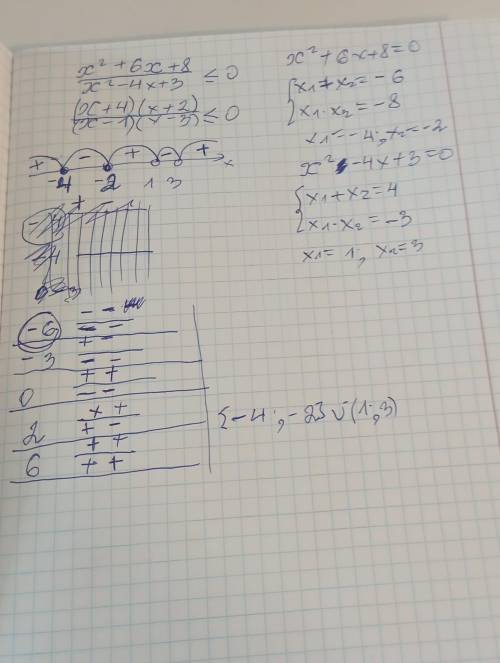 x² + 6x + 8
x² - 4x + 3 ≤ 0
(x + 4)(x + 2)
(x - 1)(x - 3) ≤ 0
+ - + - + x
-4 -2 1 3
+
-6 - -
- -
+ -
-3 - -
+ +
0 - -
+ +
2 + -
+ +
6 + +
x² + 6x + 8 = 0
x1 + x2 = -6
x1 · x2 = -8
x1 = -4; x2 = -2
x² - 4x + 3 = 0
x1 + x2 = 4
x1 · x2 = -3
x1 = 1; x2 = 3
[-4; -2] ∪ (1; 3)